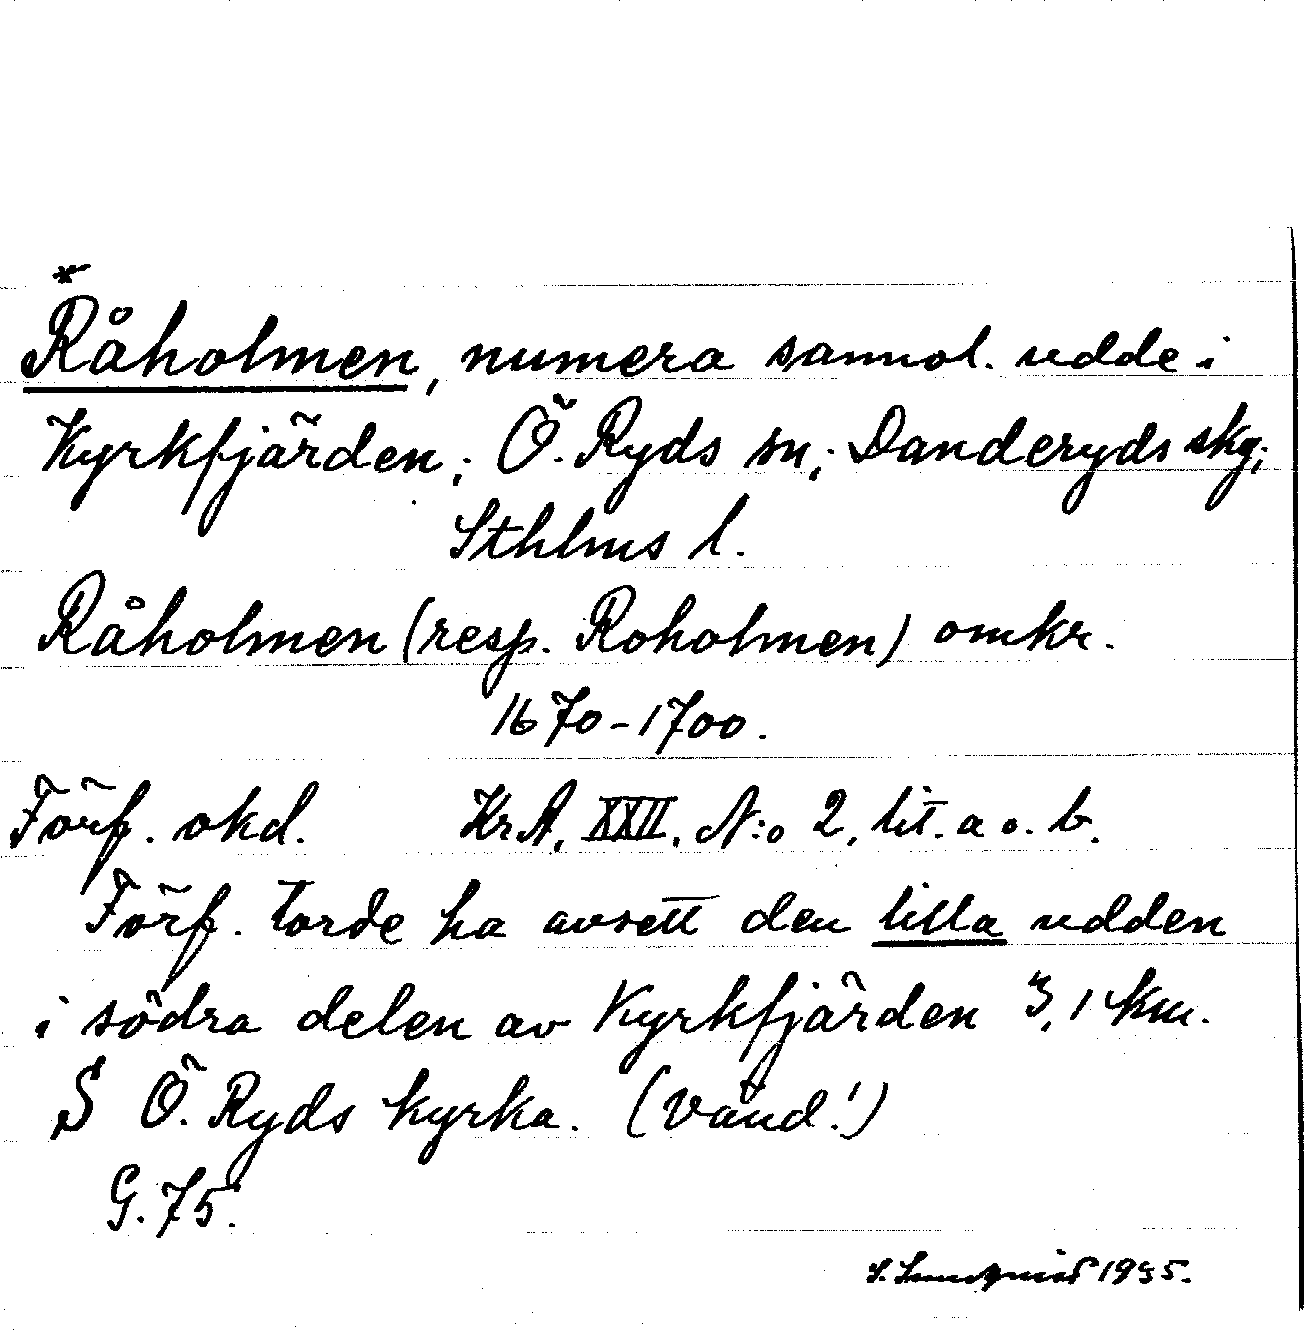 *
Råholmen, numera sannol. udde i
Kyrkfjärden; Ö. Ryds sn; Danderyds skg;
Sthlms l.
Råholmen (resp. Roholmen) omkr.
1670-1700.
Förf. okd. KrA. XXII. N:o 2, lit. a o. b.
Förf. torde ha avsett den lilla udden
i södra delen av Kyrkfjärden 3,1 km.
S Ö. Ryds kyrka. (Vänd!)
G. 75.
1935.